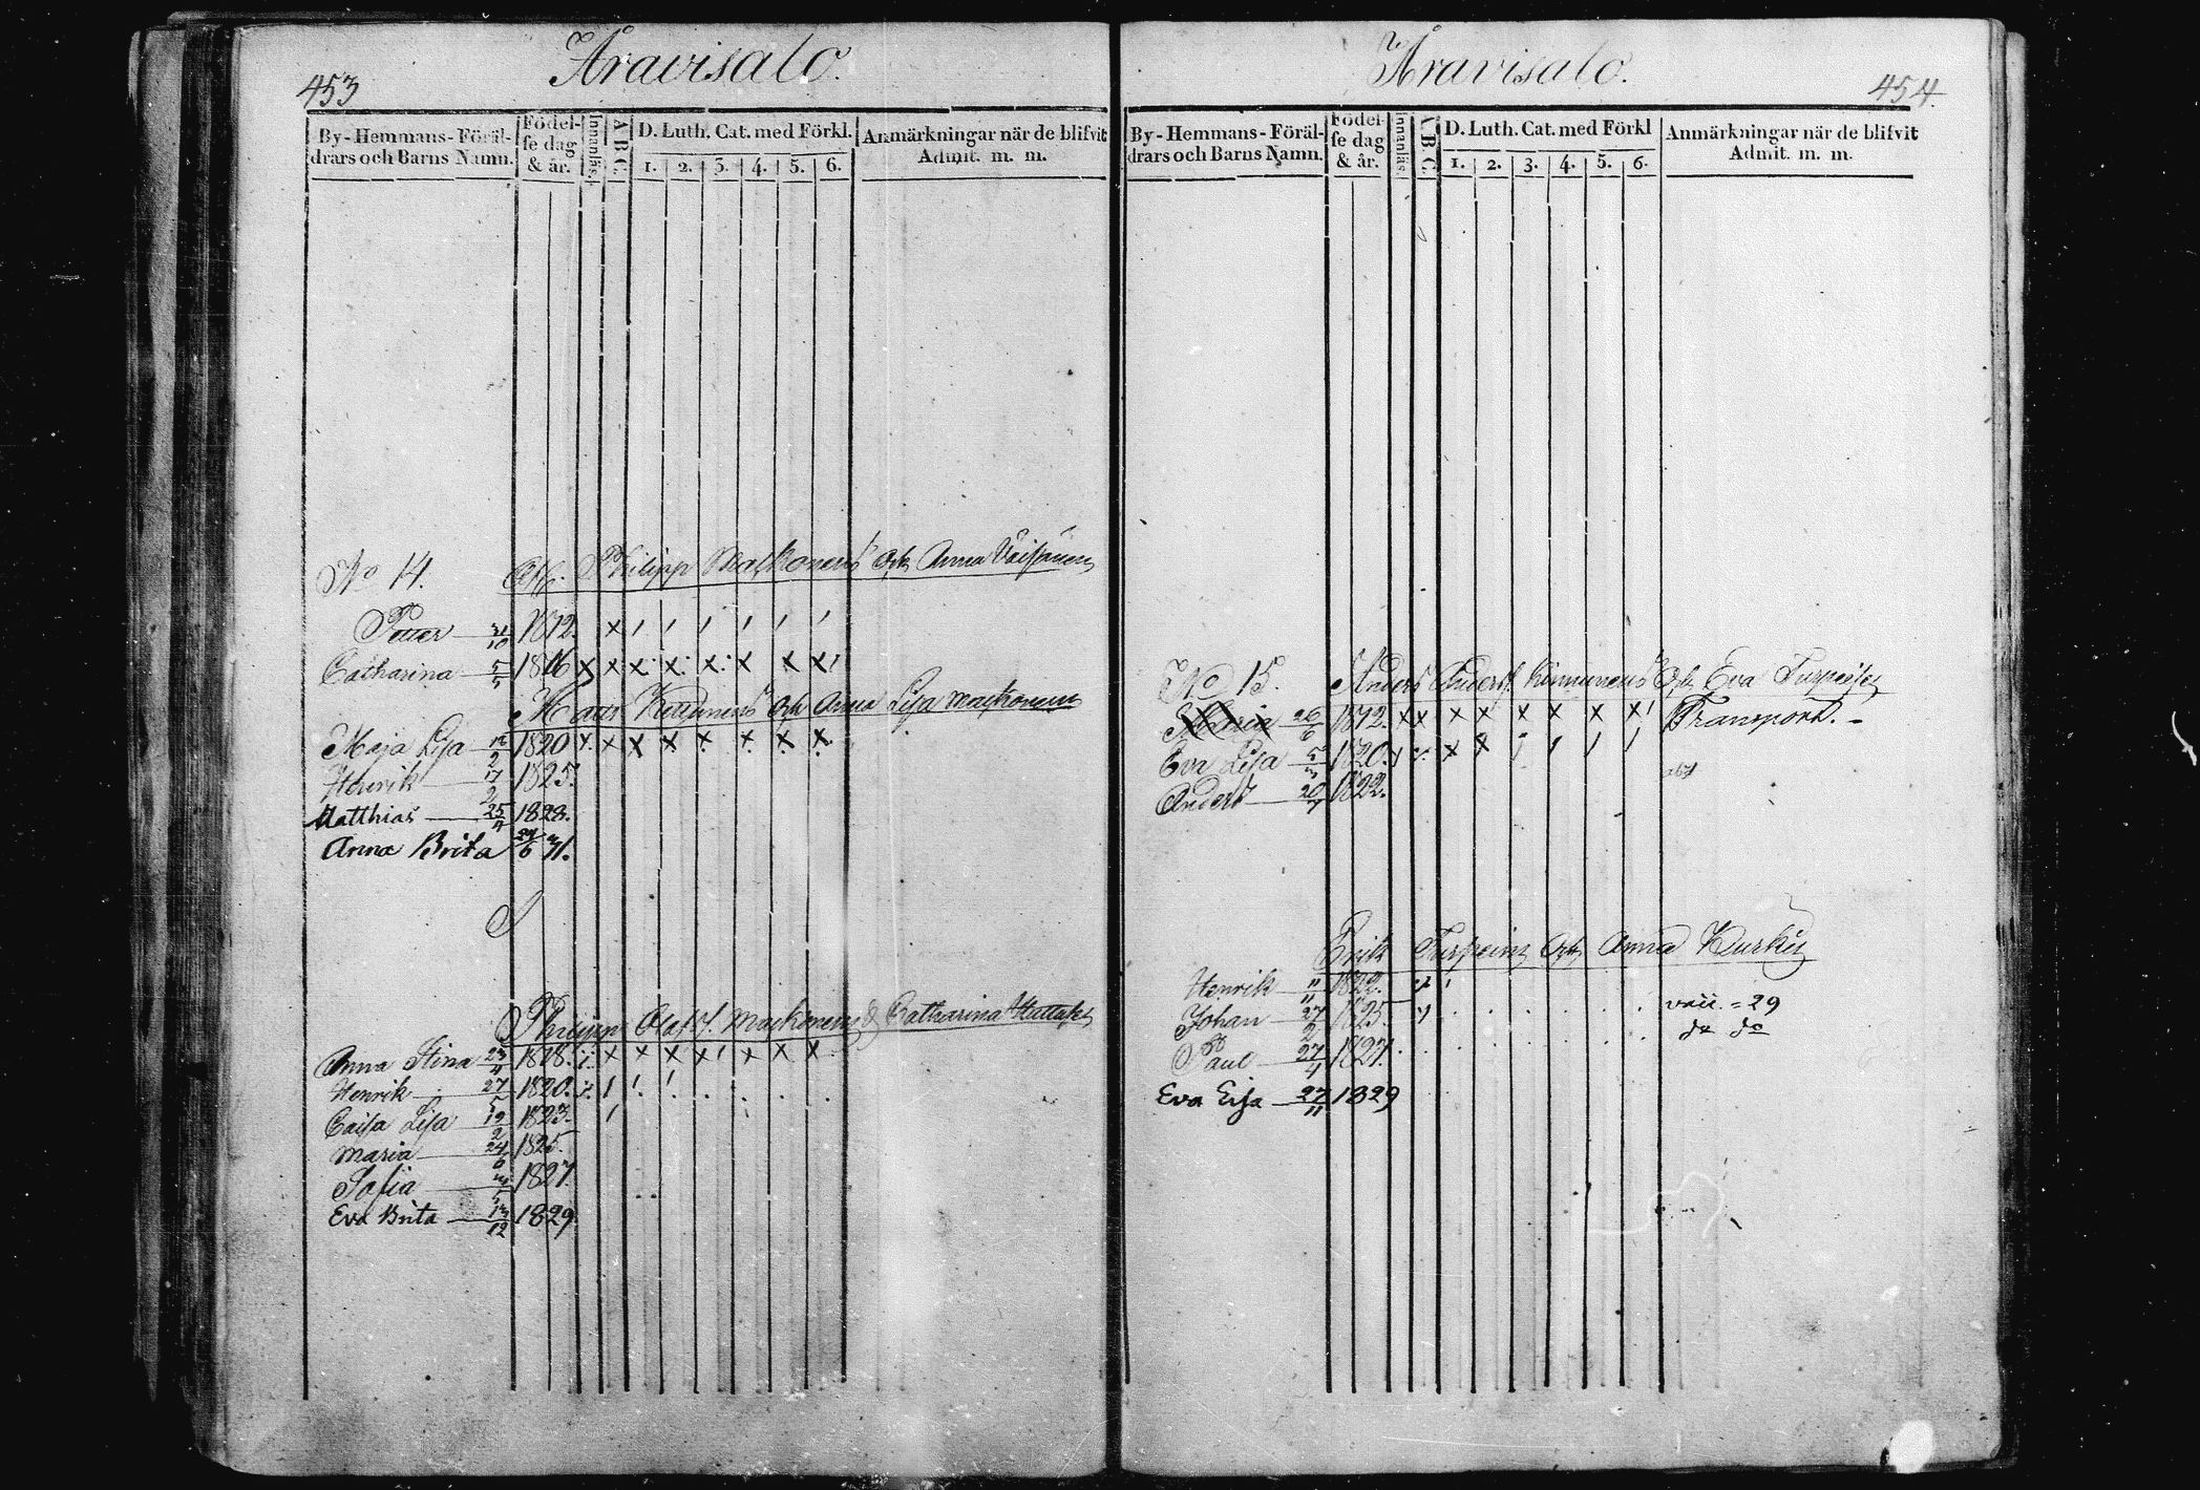 453
Aravisalo.
By-Hemmans-Föräl-
drars och Barns Namn.
Födel-
se dag
& år.
Innanläs.
A B C.
D. Luth. Cat. med Förkl.
1. 2. 3. 4. 5. 6.
Anmärkningar när de blifvit
Admit. m. m.
No 14. Philipp Maskonens Och Anna Väisänen
Petter 1812.
Catharina 5/5 1816 x x x x x x x x
Matts Kettunens Och Anna Lisa Maskonens
Maja Lisa 1820 x x x x x x x x
Henrik 17/2 1825.
Matthias 25/4 1828.
Anna Brita 6 31.
Philipp Olofs. Maskonens & Catharina
Anna Stina 23/4 1818. x x x x x x x
Henrik 27/5 1820.
Caisa Lisa 19/2 1823.
Maria 24/6 1825.
Sofia 1827
Eva Brita 13/12 1829
Aravisalo.
454.
By-Hemmans-Föräl-
drars och Barns Namn.
Födel-
se dag
& år.
Innanläs.
A B C.
D. Luth. Cat. med Förkl
1. 2. 3. 4. 5. 6.
Anmärkningar när de blifvit
Admit. m. m.
No 15. Anders Anderss. Kinnunens Och Eva
26/6 1812. x x x x x x x x Transport.
Eva Lisa 1820.
Anders 20/7 1822.
Erik Turpeinen Och Anna
Henrik 11/11 1822.
Johan 27/2 1825. = 29
Paul 27/4 1827. do
Eva Lisa 27/11 1829